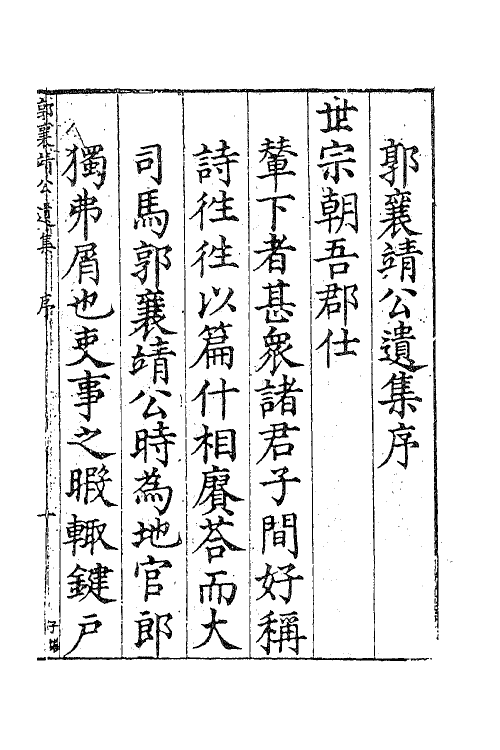 郭襄靖公遺集序
世宗朝吾郡仕
輦下者甚衆諸君子間好稱
詩徃徃以篇什相賡荅而大
司馬郭襄靖公時為地官郎
獨弗屑也吏事之暇輙鍵戶
郭襄靖公遺集 序 一